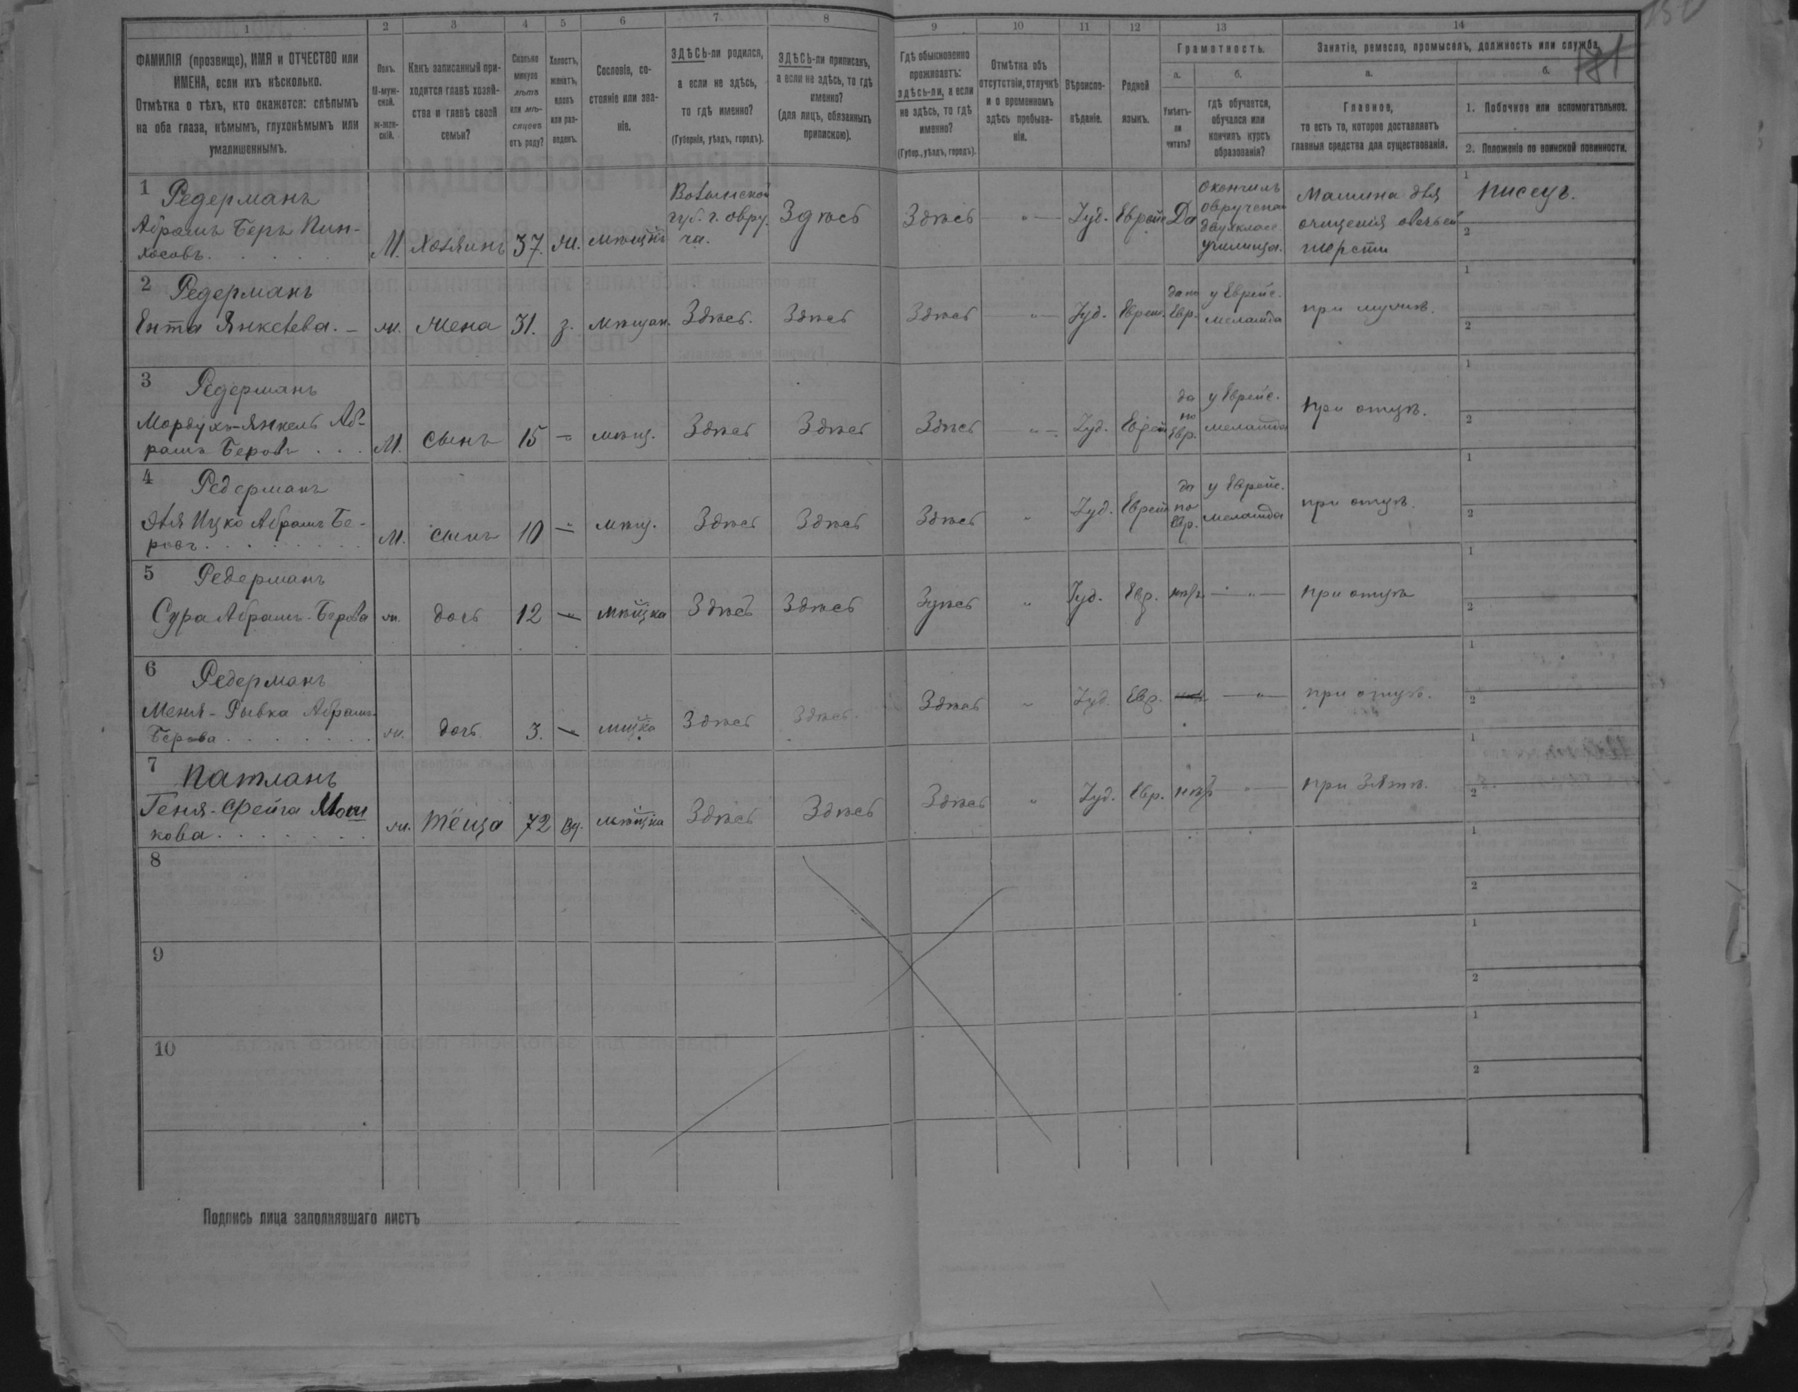 1 2 3 4 5 6 7 8 9 10 11 12 13 14
ФАМИЛІЯ (прозвище), ИМЯ и ОТЧЕСТВО или
ИМЕНА, если ихъ нѣсколько.
Отмѣтка о тѣхъ, кто окажется: слѣпымъ
на оба глаза, нѣмымъ, глухонѣмымъ или
умалишеннымъ.
Полъ.
М-муж-
ской.
ж-жен-
скій.
Какъ записанный при-
ходится главѣ хозяй-
ства и главѣ своей
семьи?
Сколько
минуло
лѣтъ
или мѣ-
сяцевъ
отъ роду?
Холостъ,
женатъ,
вдовъ
или раз-
веденъ.
Сословіе, со-
стояніе или зва-
ніе.
ЗДѢСЬ-ли родился,
а если не здѣсь,
то гдѣ именно?
(Губернія, уѣздъ, городъ).
ЗДѢСЬ-ли приписанъ,
а если не здѣсь, то гдѣ
именно?
(для лицъ, обязанныхъ
припискою).
Гдѣ обыкновенно
проживаетъ:
здѣсь-ли, а если
не здѣсь, то гдѣ
именно?
(Губер., уѣздъ, городъ).
Отмѣтка объ
отсутствіи, отлучкѣ
и о временномъ
здѣсь пребыва-
ніи.
Вѣроиспо-
вѣданіе.
Родной
языкъ.
Грамотность.
а. б.
Умѣетъ-
ли
читать?
гдѣ обучается,
обучался или
кончилъ курсъ
образованія?
Занятіе, ремесло, промыселъ, должность или служба.
а. б.
Главное,
то есть то, которое доставляетъ
главныя средства для существованія.
1. Побочное или вспомогательное.
2. Положеніе по воинской повинности.
1 Редерманъ
Абрамъ Беръ Пин-
хосовъ.
М. Хозяинъ 37. ж.
Волынской
губ. г. Овру-
ча.
Здѣсь Здѣсь — " — Іуд. Еврейс Да
Окончилъ
двухкласс
училища.
Машина для
очищенія овечьей
шерсти
1 писецъ.
2
2 Редерманъ
Ента Янкелева. —
ж. жена 31. з. мѣщан. Здѣсь. Здѣсь Здѣсь — " — Іуд. Еврейс.
да по
Евр.
у Еврейс.
меламда
при мужѣ.
1
2
3 Редерманъ
Мордухъ-Янкель Аб-
рамъ Беровъ . . .
М. сынъ 15 — мѣщ. Здѣсь Здѣсь Здѣсь — " — Іуд. Еврей
да
по
Евр.
у Еврейс.
меламда
при отцѣ.
1
2
4 Редерманъ
Ицко Абрамъ Бе-
ровъ.
М. сынъ 10 — мѣщ. Здѣсь Здѣсь Здѣсь " Іуд. Еврей
да
по
Евр.
у Еврейс.
меламда
при отцѣ.
1
2
5 Редерманъ
Сура Абрамъ-Берова
ж. дочь 12 — мѣщка Здѣсь Здѣсь Здѣсь " Іуд. Евр. нѣтъ — " — при отцѣ
1
2
6 Редерманъ
Меня-Рывка Абрамъ-
Берова
ж. дочь 3. — мщка Здѣсь Здѣсь. Здѣсь " Іуд. Евр. — " — при отцѣ.
1
2
7 Патланъ
Геня-Фейга Мош
кова
ж. тёща 72 Вд. мѣщка Здѣсь Здѣсь Здѣсь " Іуд. Евр. нѣтъ " — при зятѣ.
1
2
8
1
2
9
1
2
10
1
2
Подпись лица заполнявшаго листъ